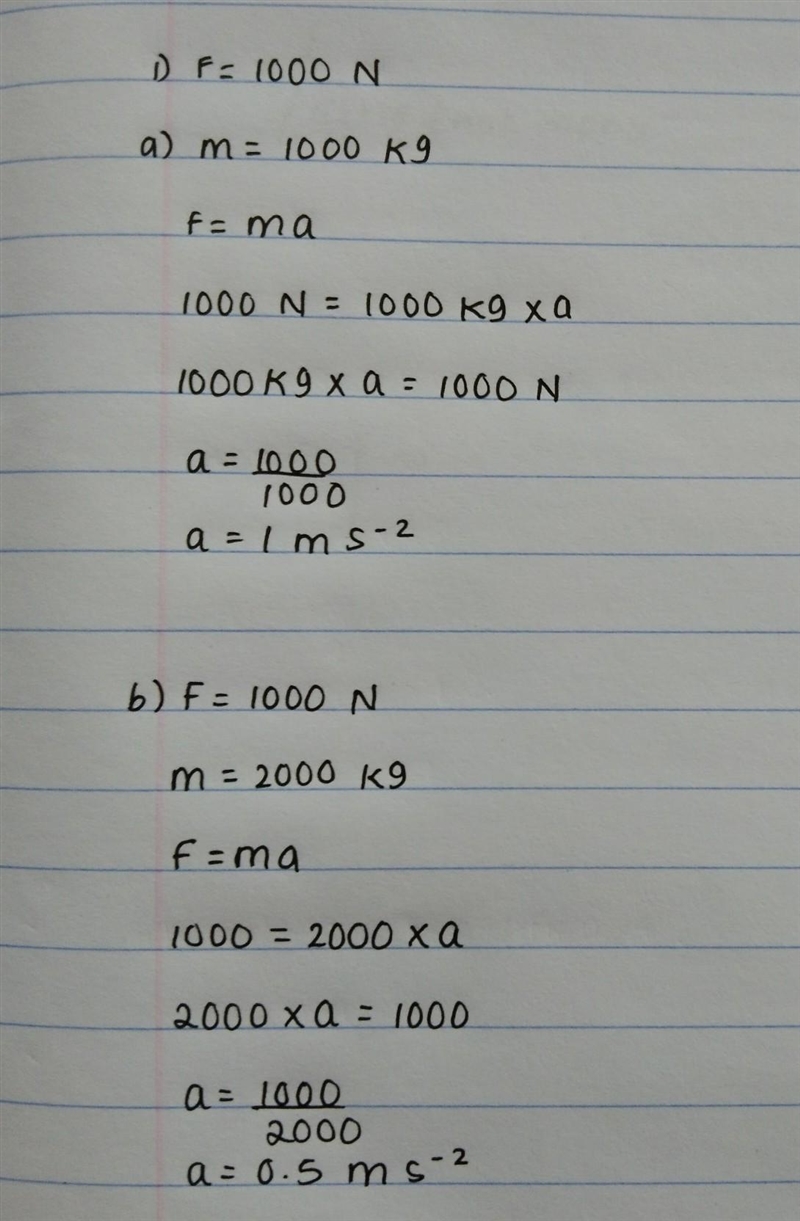 1) F = 1000 N
a) m = 1000 kg
F = ma
1000 N = 1000 kg x a
1000 kg x a = 1000 N
a = 1000
1000
a = 1 m s⁻²
b) F = 1000 N
m = 2000 kg
F = ma
1000 = 2000 x a
2000 x a = 1000
a = 1000
2000
a = 0.5 m s⁻²